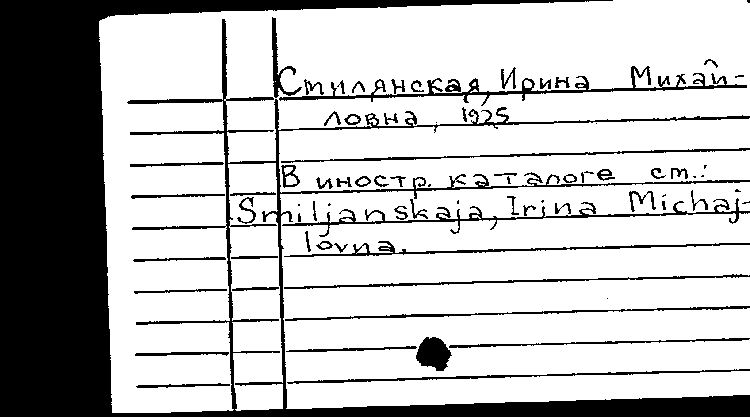 Смилянская, Ирина Михай-
ловна, 1925
В иностр. каталоге см.:
Smiljanskaja, Irina Michaj-
lovna.